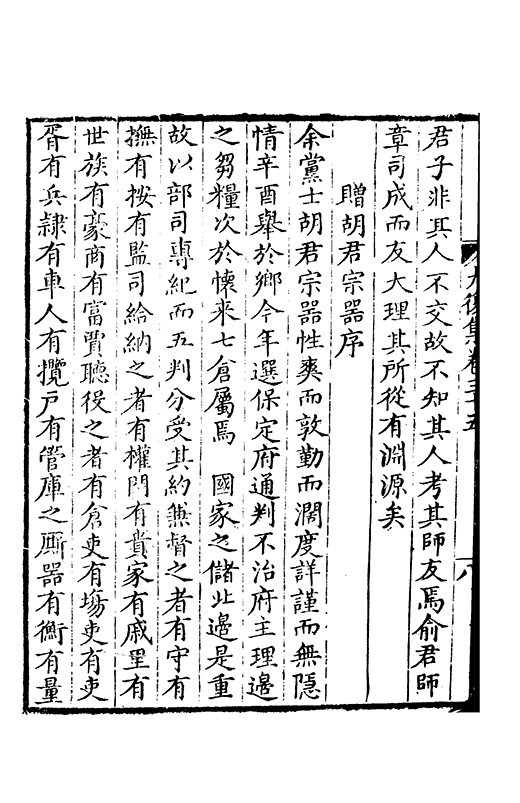 大復集卷三十五
八
君子非其人不交故不知其人考其師友焉俞君師
章司成而友大理其所從有淵源矣
贈胡君宗器序
余黨士胡君宗器性爽而敦勤而濶度詳謹而無隱
情辛酉舉於鄉今年選保定府通判不治府主理邊
之芻糧次於懷来七倉屬焉　國家之儲北邊是重
故以部司專紀而五判分受其約兼督之者有守有
撫有按有監司給納之者有權門有貴家有戚里有
世族有豪商有富賈聽役之者有倉吏有塲吏有吏
胥有兵隷有車人有攬户有管庫之厮器有衡有量